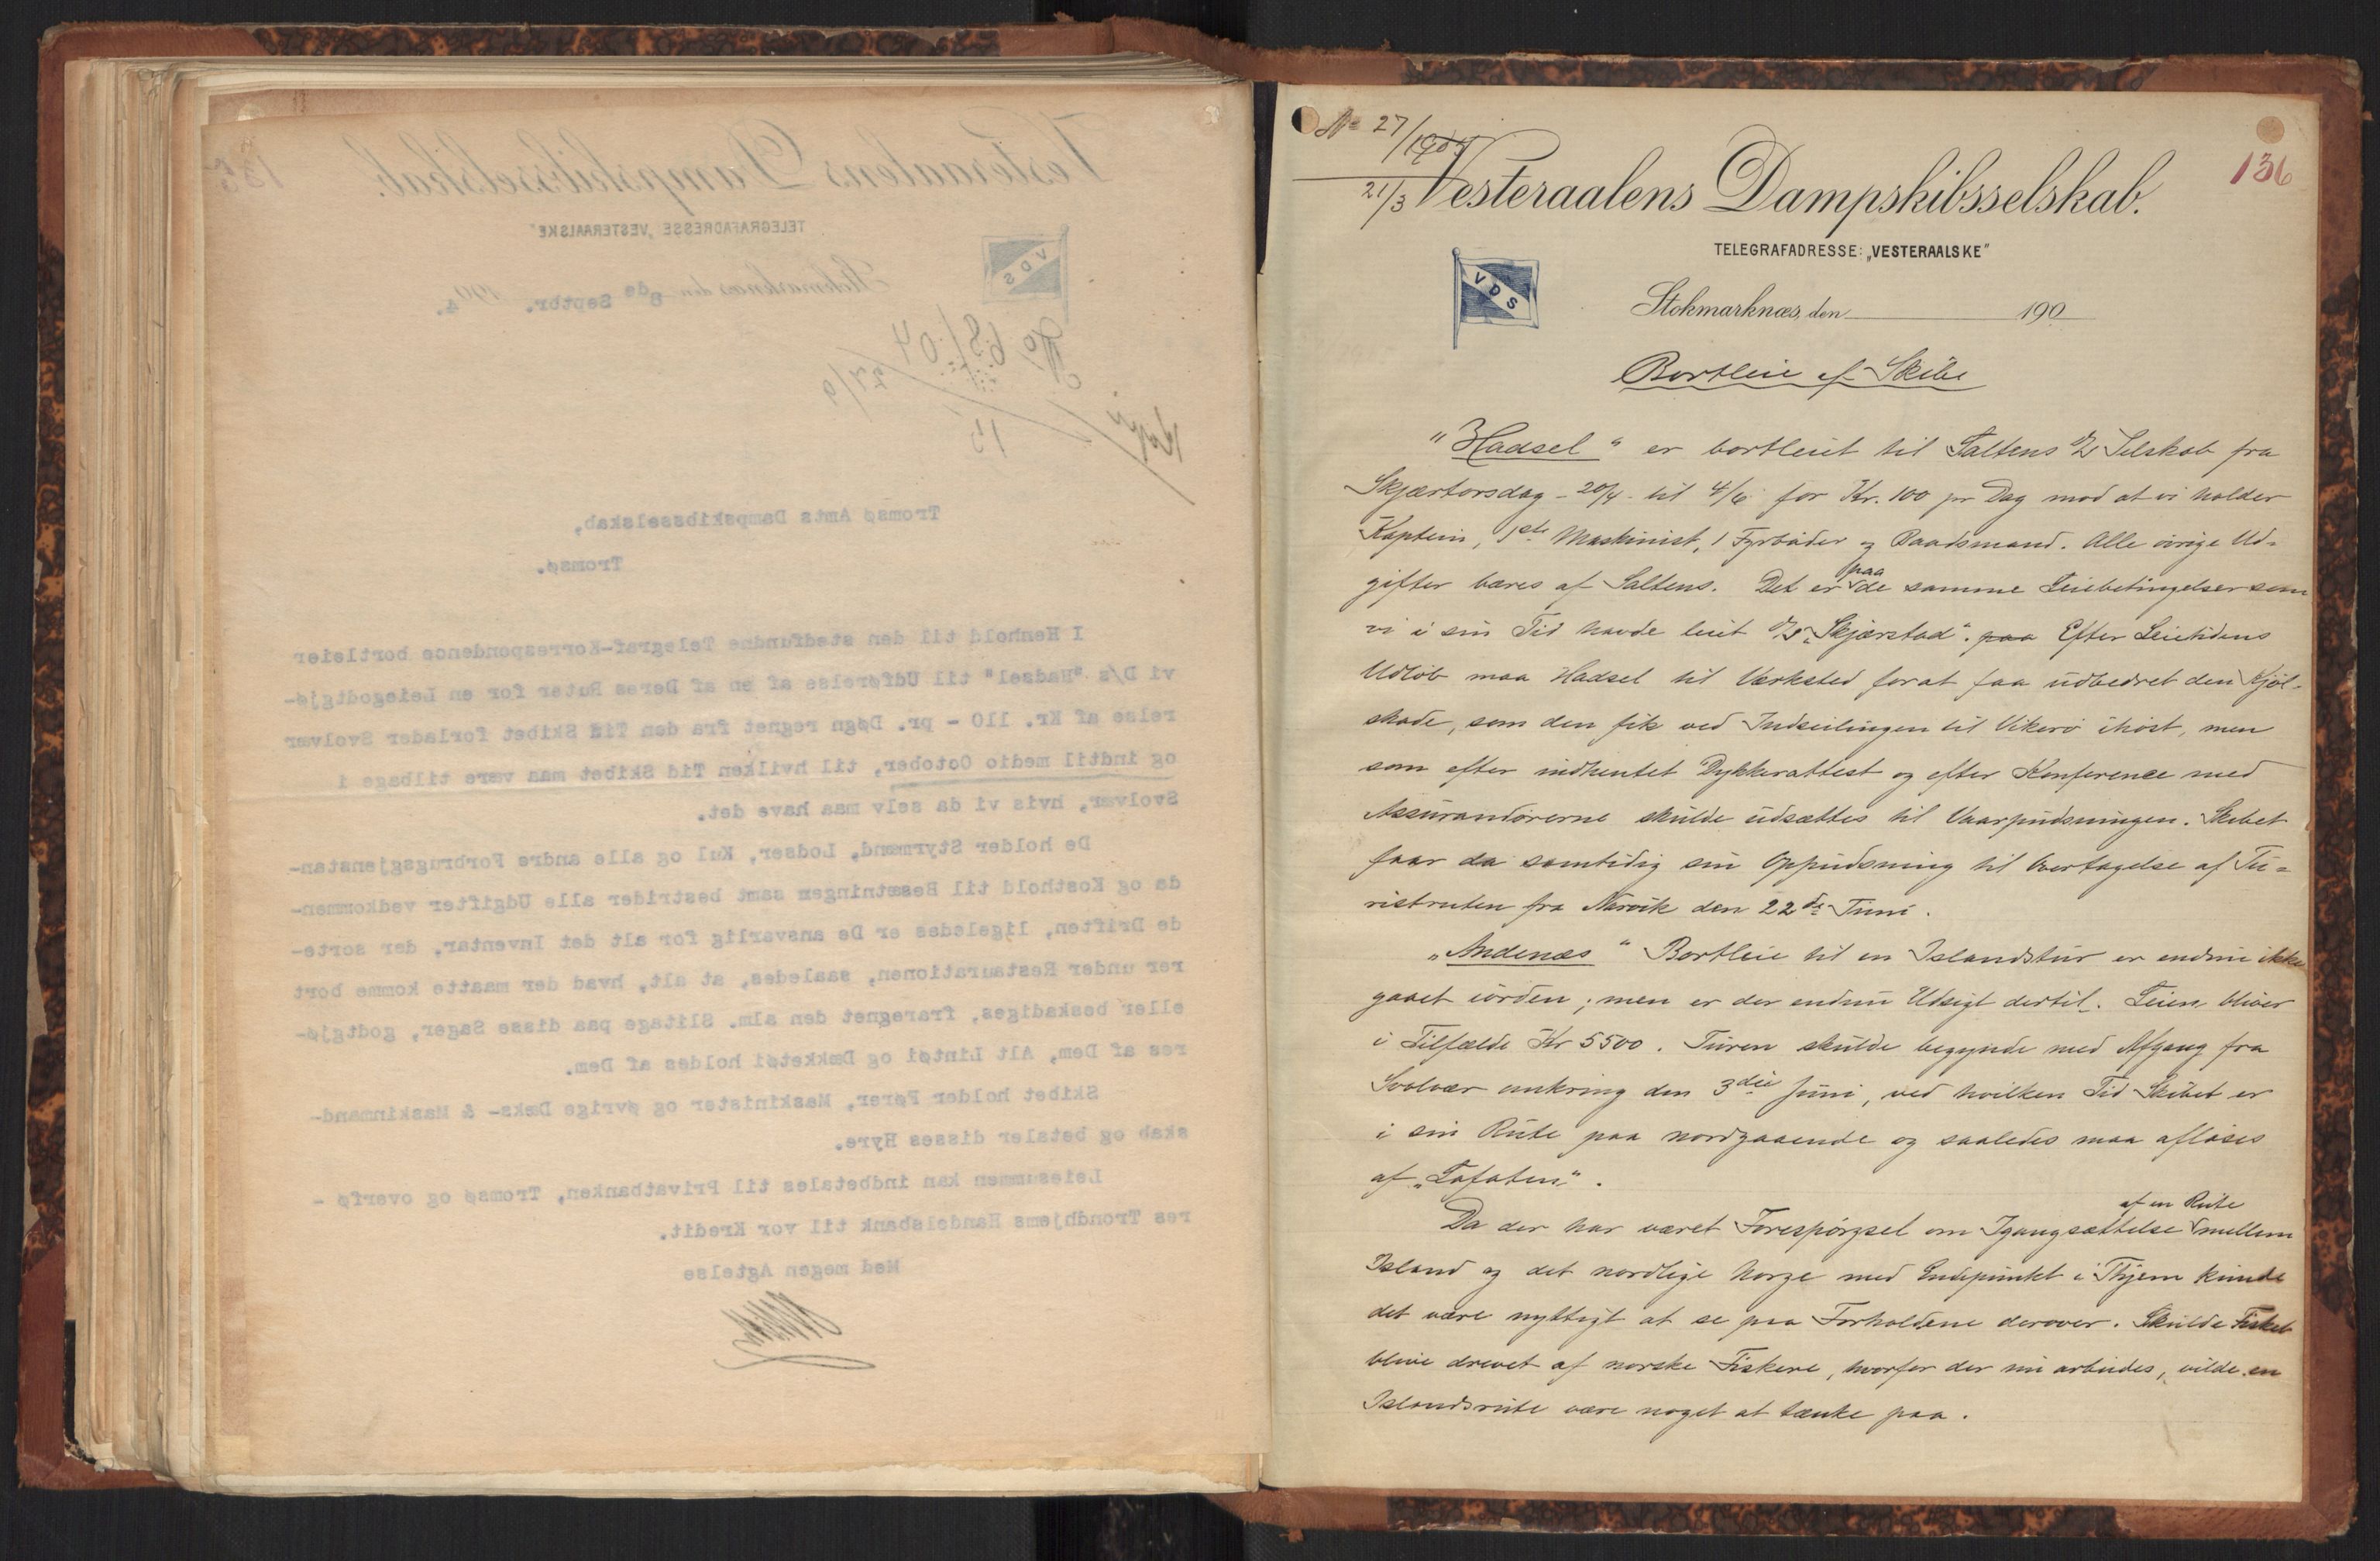 Vesteraalens Dampskibsselskab.
135
TELEGRAFADRESSE „VESTERAALSKE"
VDS
Stokmarknæs den 8de Septbr. 1904.
No 68/04
27/9
15
Tromsø Amts Dampskibsselskab,
Tromsø.
I Henhold til den stedfundne Telegraf-Korrespondence bortleier
vi D/s "Hadsel" til Udførelse af en af Deres Ruter for en Leiegodtgjø-
relse af Kr. 110 - pr. Døgn regnet fra den Tid Skibet forlader Svolvær
og indtil medio October, til hvilken Tid Skibet maa være tilbage i
Svolvær, hvis vi da selv maa have det.
De holder Styrmænd, Lodser, Kul og alle andre Forbrugsgjenstan-
de og Kosthold til Besætningen samt bestrider alle Udgifter vedkommen-
de Driften, ligeledes er De ansvarlig for alt det Inventar, der sorte-
rer under Restaurationen, saaledes, at alt, hvad der maatte komme bort
eller beskadiges, fraregnet den alm. Slitage paa disse Sager, godtgjø-
res af Dem, Alt Lintøi og Dækketøi holdes af Dem.
Skibet holder Fører, Maskinister og øvrige Dæks- & Maskinmand-
skab og betaler disses Hyre.
Leiesummen kan indbetales til Privatbanken, Tromsø og overfø -
res Trondhjems Handelsbank til vor Kredit.
Med megen Agtelse
No 27/1905
21/3
136
Vesteraalens Dampskibsselskab.
TELEGRAFADRESSE: „VESTERAALSKE"
VDS
Stokmarknæs, den 190
Bortleie af Skibe
"Hadsel" er bortleiet til Saltens D/s Selskab fra
Skjærtorsdag - 20/4 - til 4/6 for Kr. 100 pr Dag mod at vi holder
Kaptein, 1ste Maskinist, 1 Fyrbøder og Baadsmand. Alle øvrige Ud-
gifter bæres af Saltens. Det er paa de samme Leiebetingelser som
vi i sin Tid havde leiet D/S „Skjærstad". paa Efter Leietidens
Udløb maa Hadsel til Værksted forat faa udbedret den Kjøl-
skade, som den fik ved Indseilingen til Vikerø ihøst, men
som efter indhentet Dykkerattest og efter Konference med
Assurandørerne skulde udsættes til Vaarpudsningen. Skibet
faar da samtidig sin Oppudsning til Overtagelse af Tu-
ristruten fra Narvik den 22de Juni.
„Andenæs" Bortleie til en Islandstur er endnu ikke
gaaet iorden; men er der endnu Udsigt dertil. Leien bliver
i Tilfælde Kr 5500. Turen skulde begynde med Afgang fra
Svolvær omkring den 3die Juni, ved hvilken Tid Skibet er
i sin Rute paa nordgaaende og saaledes maa afløses
af „Lofoten".
Da der har været Forespørgsel om Igangsættelse af en Rute mellem
Island og det nordlige Norge med Endepunkt i Thjem kunde
det være nyttigt at se paa Forholdene derover. Skulde Fisket
blive drevet af norske Fiskere, hvorfor der nu arbeides, vilde en
Islandsrute være noget at tænke paa.